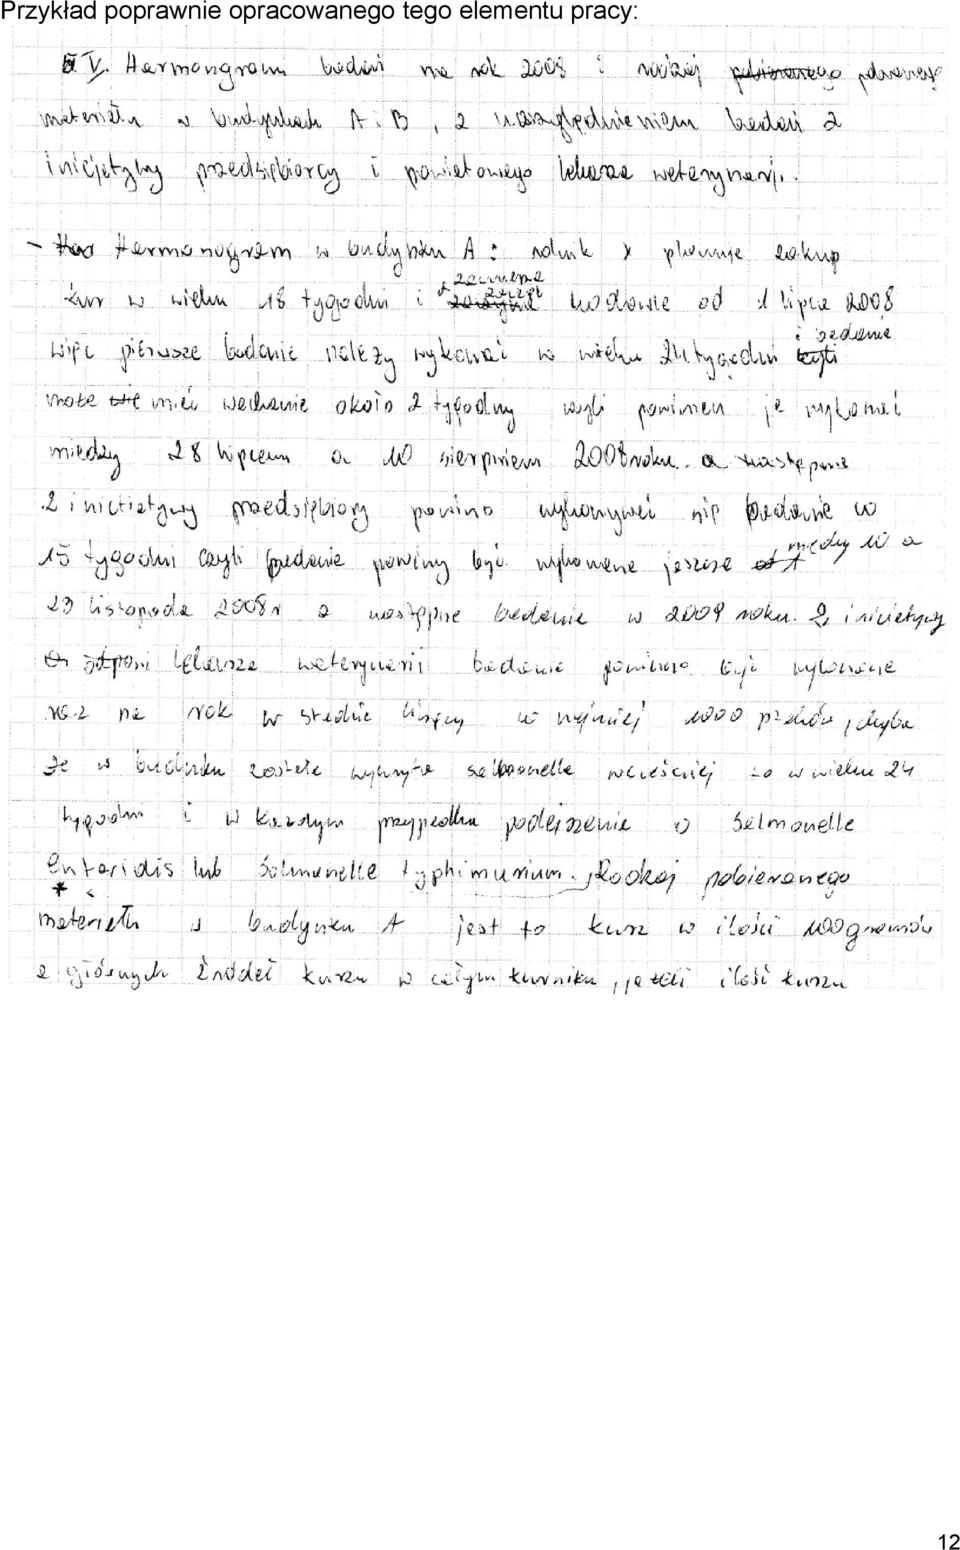 Przykład poprawnie opracowanego tego elementu pracy:
V. Harmonogram badań na rok 2008 i rodzaj pobieranego
materiału w budynkach A i B, z uwzględnieniem badań z
inicjatywy przedsiębiorcy i powiatowego lekarza weterynarii.
- Harmonogram w budynku A: rolnik x planuje zakup
kur w wieku 18 tygodni i zamierza zacząć hodowle od 1 lipca 2008
więc pierwsze badanie należy wykonać w wieku 24 tygodni i badanie
może mieć wachanie około 2 tygodny czyli powinien je wykonać
między 28 lipcem a 10 sierpniem 2008 roku. a następne
z inictiatywy przedsiębiorcy powino wykonywać się badanie co
15 tygodni czyli badanie powiny być wykonane jeszcze między 10 a
23 listopada 2008r a następne badanie w 2009 roku. Z inicietywy
lekarza weterynarii badanie powinno być wykonane
raz na rok w stadzie liczący co najmniej 1000 ptaków, chyba
że w budynku została wykryta salmonella wcześniej to w wieku 24
tygodni i w każdym przypadku podejrzenia o Salmonelle
enteridis lub Salmonelle typhimurium. Rodzaj pobieranego
materiału w budynku A jest to kurz w ilości 100 gramów
z głównych źródeł kurzu w całym kurniku, jeżeli ilość kurzu
12